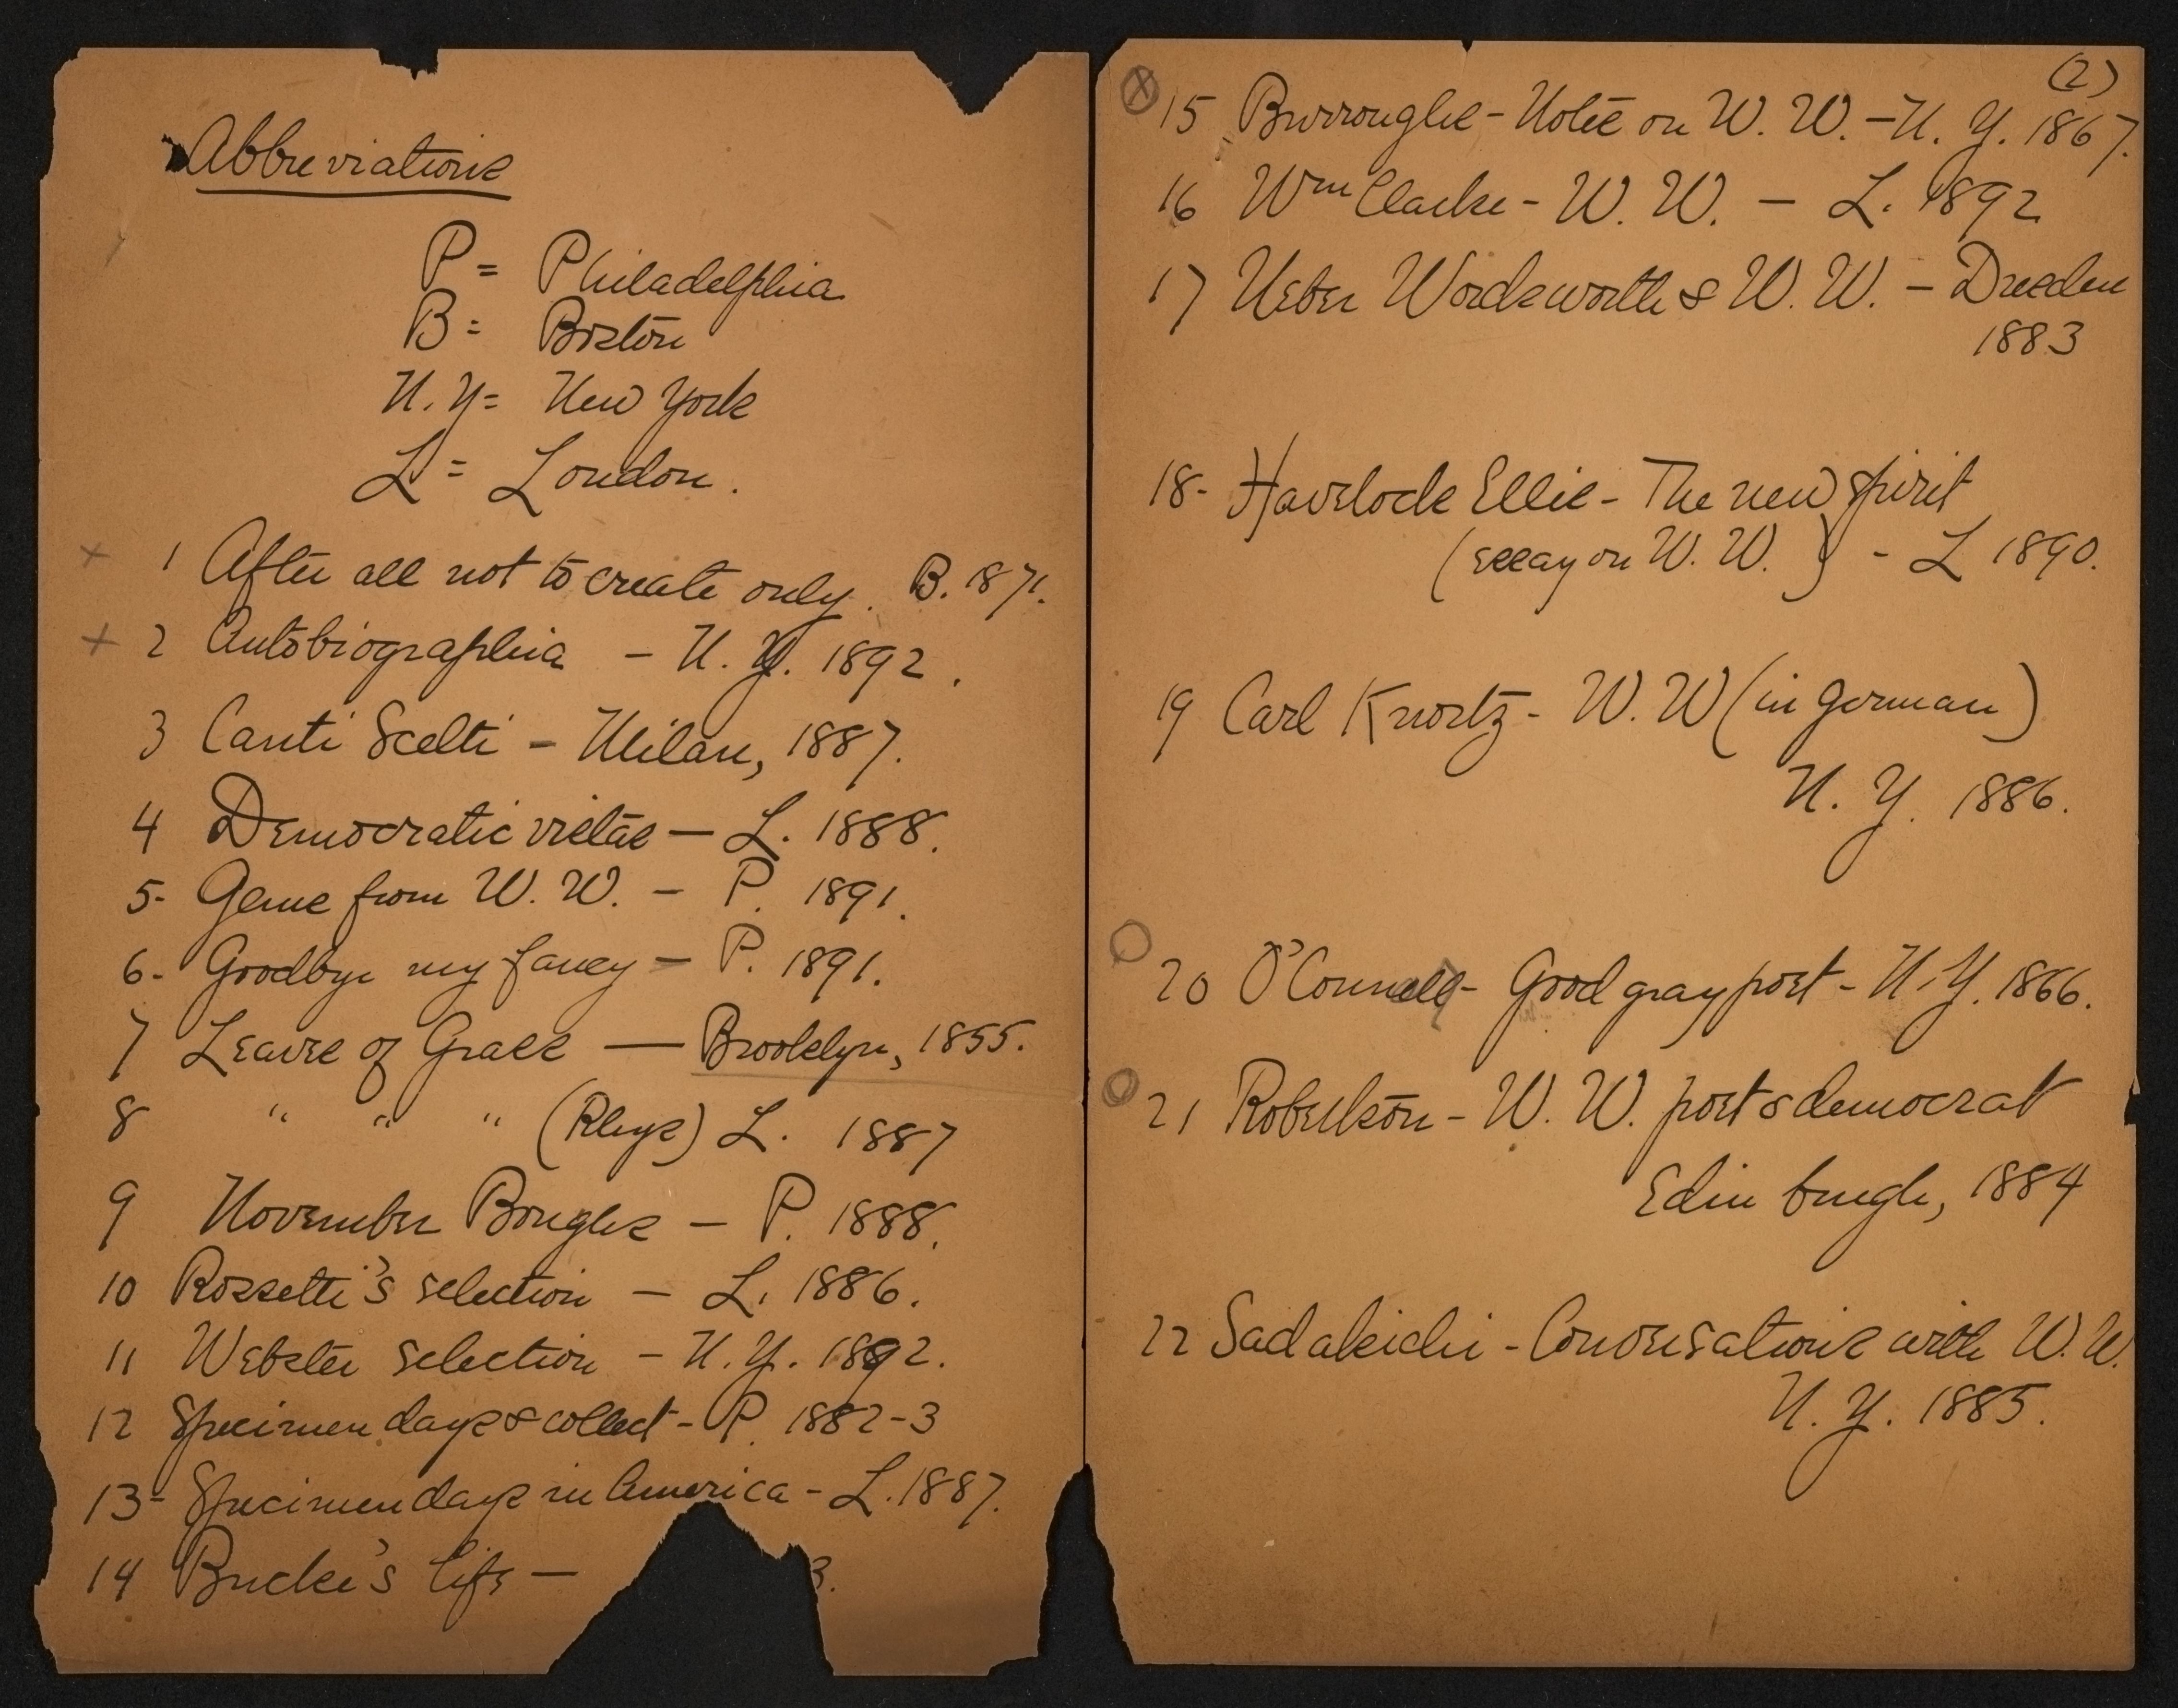 Abbreviations
P = Philadelphia
B = Boston
N. Y = New York
L = London.
1 After all not to create only. B. 1871.
2 Autobiographia - N. Y. 1892.
3 Canti Scelti - Milan, 1887.
4 Democratic vistas - L. 1888.
5- Gems from W. W. - P. 1891.
6- Goodbye my fancy - P. 1891.
7 Leaves of Grass — Brooklyn, 1855.
8 " " " (Rhys) L. 1887
9 November Boughs - P. 1888.
10 Rossetti's selection - L. 1886.
11 Webster selection - N. Y. 1892.
12 Specimen days & collect - P. 1882-3
13- Specimen days in America - L. 1887.
14 Bucke's life - 3.
(2)
15 Burroughs - Notes on W. W. - N. Y. 1867.
16 Wm Clarke - W. W. - L. 1892
17 Ueber Wordsworth & W. W. - Dresden
1883
18- Havelock Ellis - The new spirit
(essay on W. W. ) - L 1890.
19 Carl Knortz - W. W (in German)
N. Y. 1886.
20 O'Connell - Good gray poet - N. Y. 1866.
21 Robertson - W. W. poet & democrat
Edinburgh, 1884
22 Sadakichi - Conversations with W. W.
N. Y. 1885.